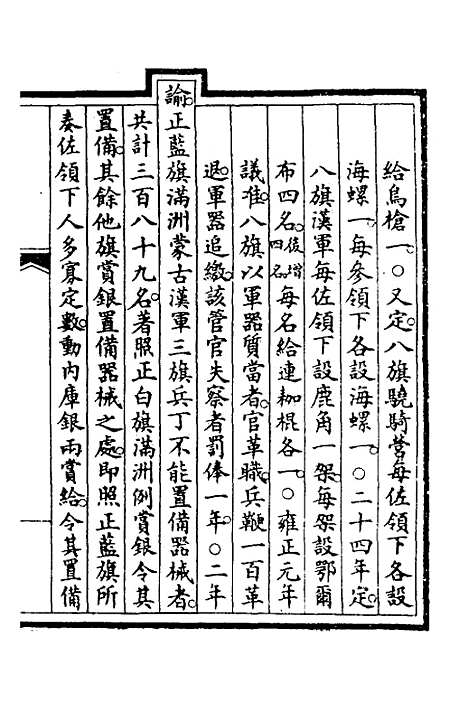 給鳥槍一○又定八旗驍騎營每佐領下各設
海螺一每參領下各設海螺一○二十四年定
八旗漢軍每佐領下設鹿角一架每架設鄂爾
布四名後增四名每名給連耞棍各一○雍正元年
議准八旗以軍器質當者官革職兵鞭一百革
退軍器追繳該管官失察者罰俸一年○二年
諭正藍旗滿洲蒙古漢軍三旗兵丁不能置備器械者
共計三百八十九名著照正白旗滿洲例賞銀令其
置備其餘他旗賞銀置備器械之處即照正藍旗所
奏佐領下人多寡定數動內庫銀兩賞給令其置備